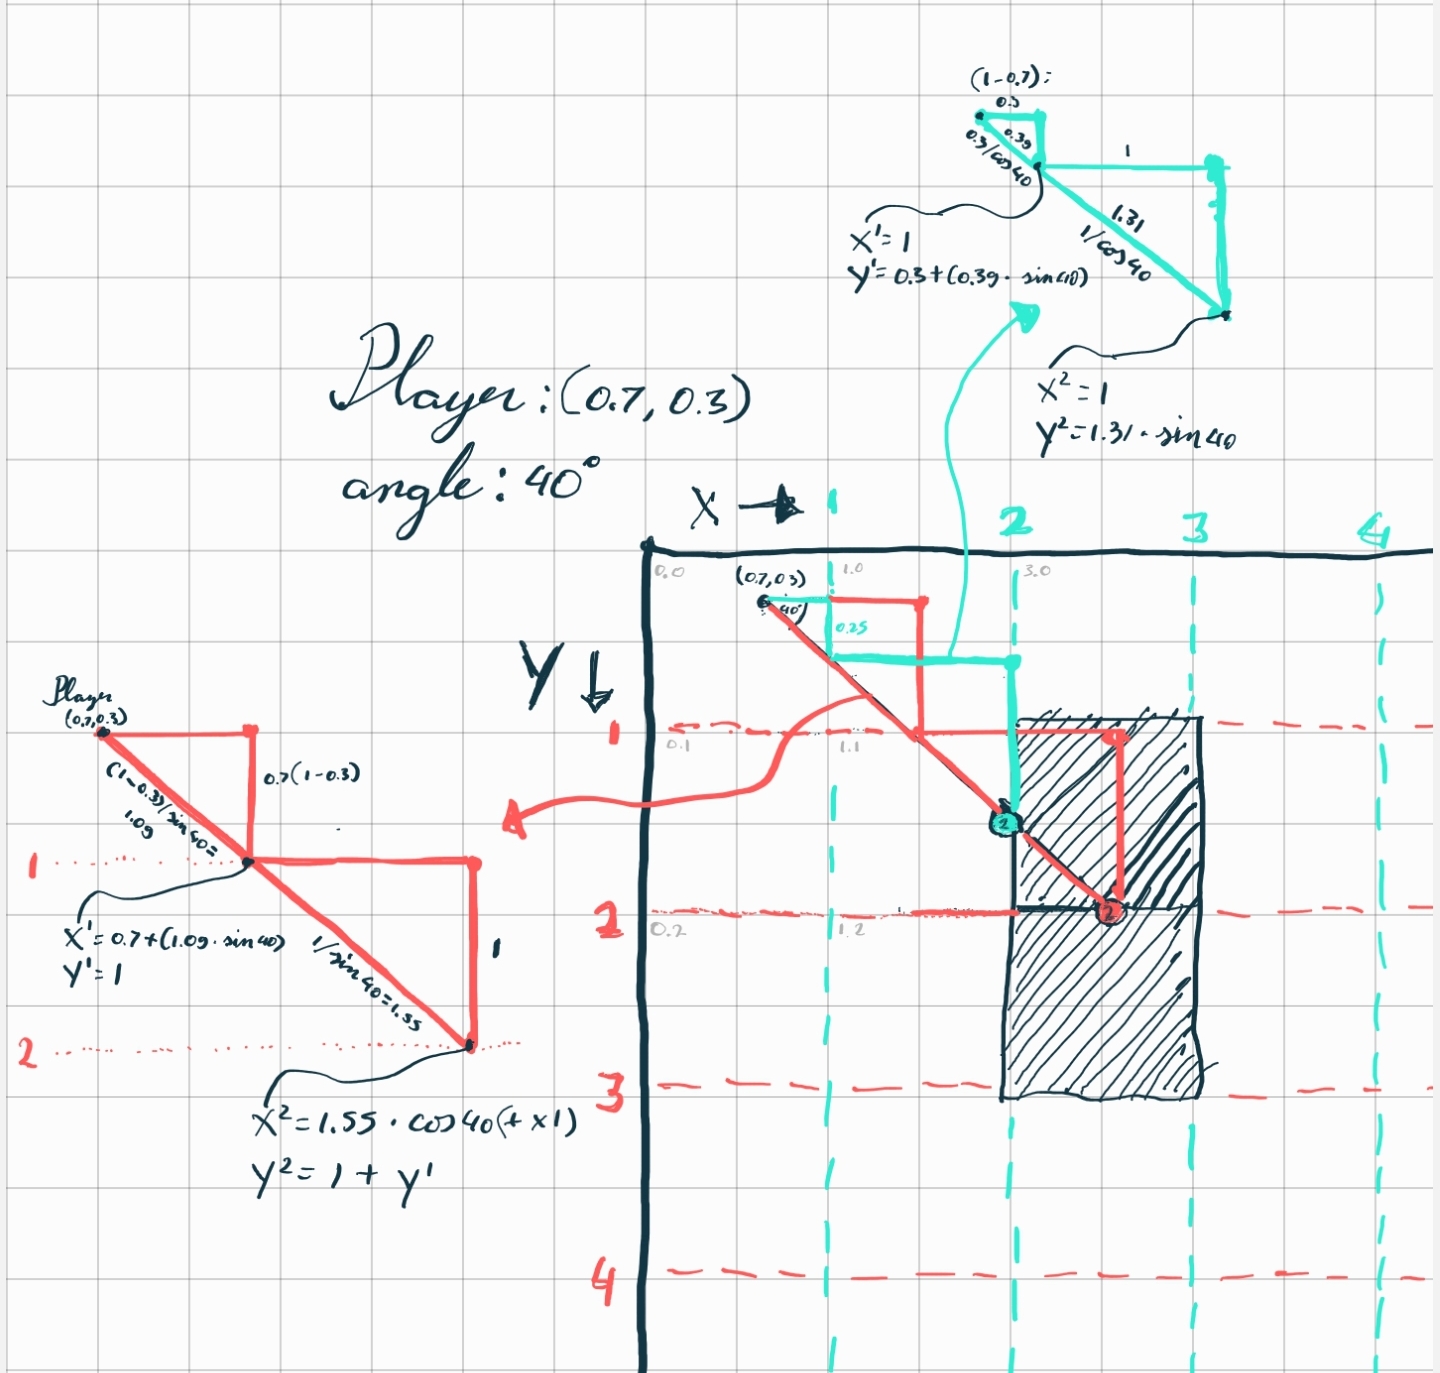 (1-0.7):
0.3
0.39
0.3/cos40
1
1.31
1/cos40
X¹=1
Y¹=0.3+(0.39·sin40)
X²=1
Y²=1.31·sin40
Player:(0.7,0.3)
angle:40°
X →
1
2
3
4
0.0
1.0
3.0
(0.7,0.3)
40°
0.25
Y ↓
1
0.1
1.1
1
2
2
2
0.2
1.2
3
4
Player
(0.7,0.3)
0.7(1-0.3)
(1-0.3)/sin40=
1.09
1
X¹=0.7+(1.09·sin40)
Y¹=1
1/sin40=1.55
1
2
X²=1.55·cos40(+x1)
Y²=1+y¹